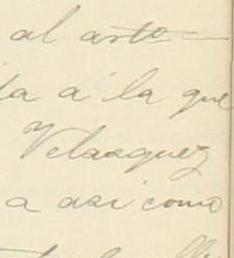 al arte
a á la que
Velasquez
a asi como